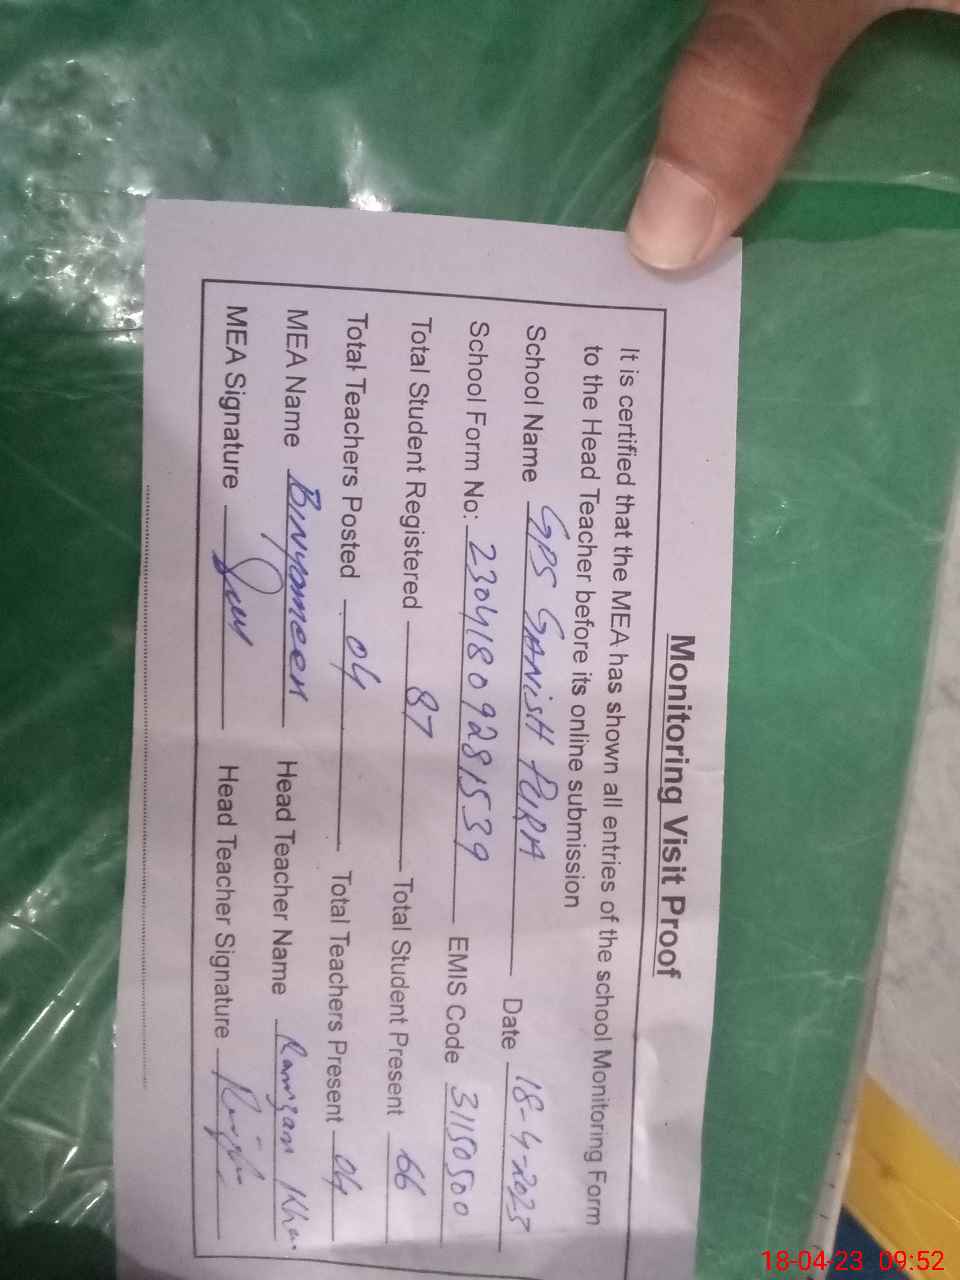 Monitoring Visit Proof
It is certified that the MEA has shown all entries of the school Monitoring Form
to the Head Teacher before its online submission
School Name GPS SANISH PURA Date 18-4-2023
School Form No: 23041809281539 EMIS Code 31150500
Total Student Registered 87 Total Student Present 66
Total Teachers Posted 04 Total Teachers Present 04
MEA Name Binyameen Head Teacher Name Ramzan Khan
MEA Signature Head Teacher Signature
18-04-23 09:52